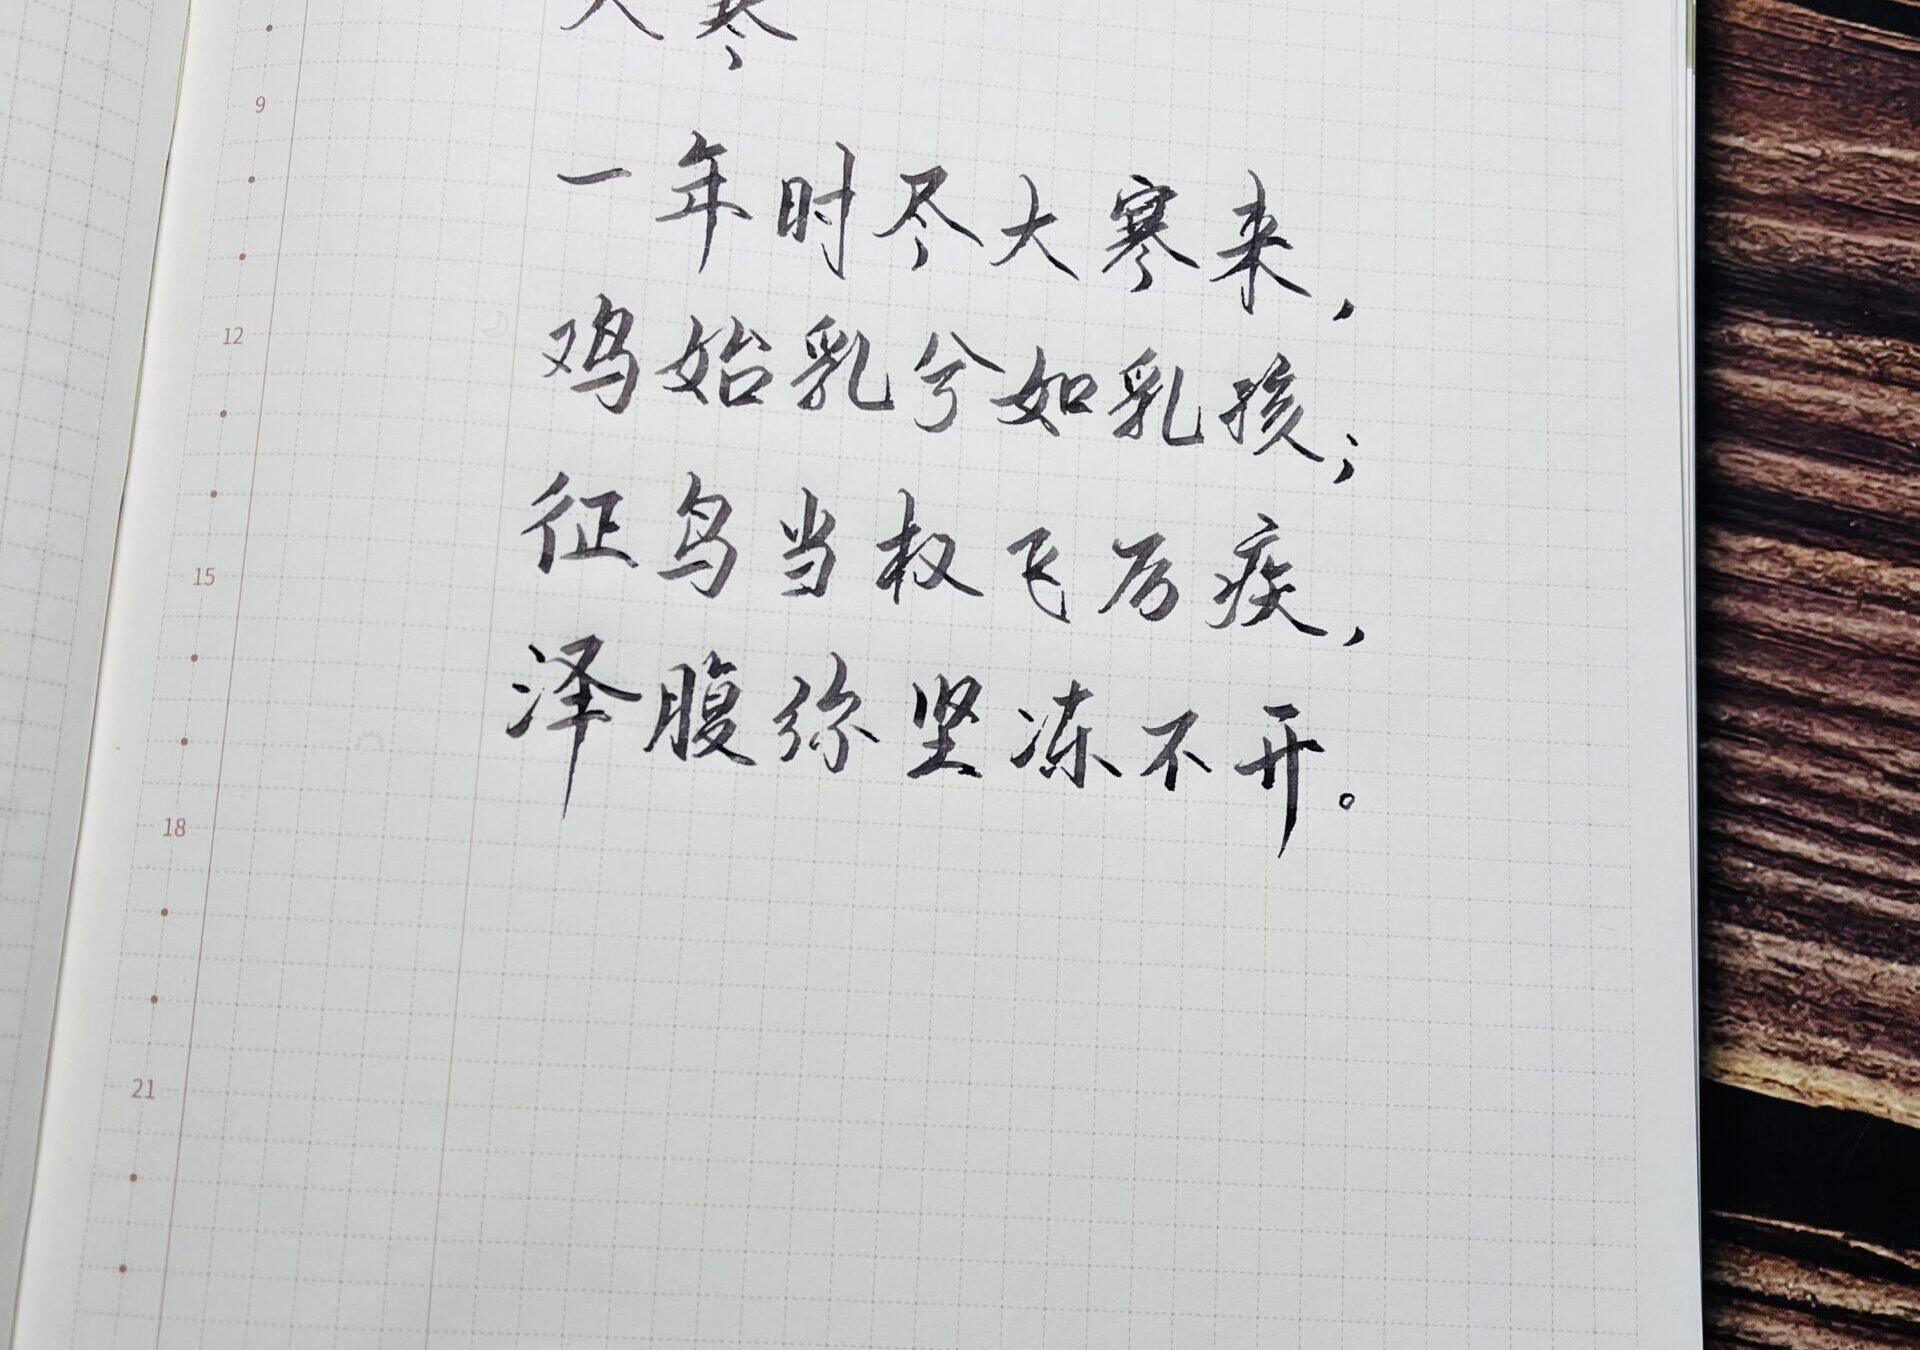 大寒
9
一年时尽大寒来，
12
鸡始乳兮如乳孩；
征鸟当权飞厉疾，
15
泽腹弥坚冻不开。
18
21